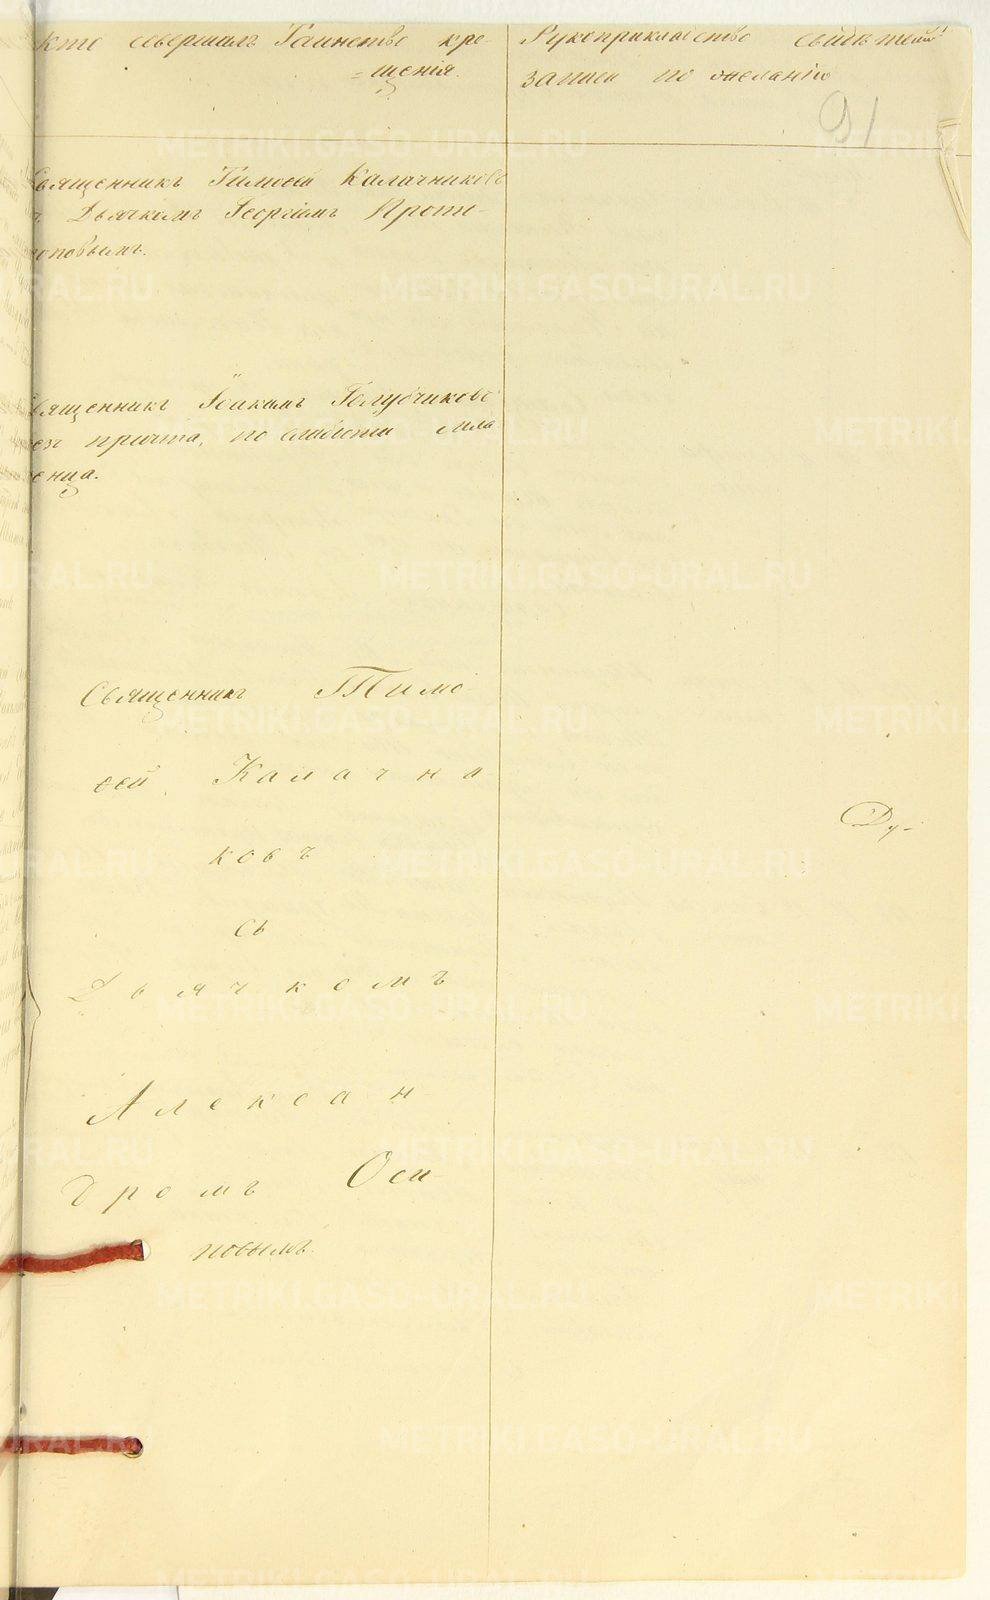 кто совершалъ Таинство кре-
=щенія.
Рукоприкладство свидѣтелей
записи по желанію
91
Священникъ Тимофей Калачниковъ
съ Дьячкомъ Георгіемъ Прото-
поповымъ.
Священникъ Іоакимъ Голубчиковъ
безъ причта, по слабости мла
денца.
Священникъ Тимо
ѳей Калачни
ковъ
съ
Дьячкомъ
Алексан
дромъ Оси-
повымъ.
Ду-
METRIKI.GASO-URAL.RU